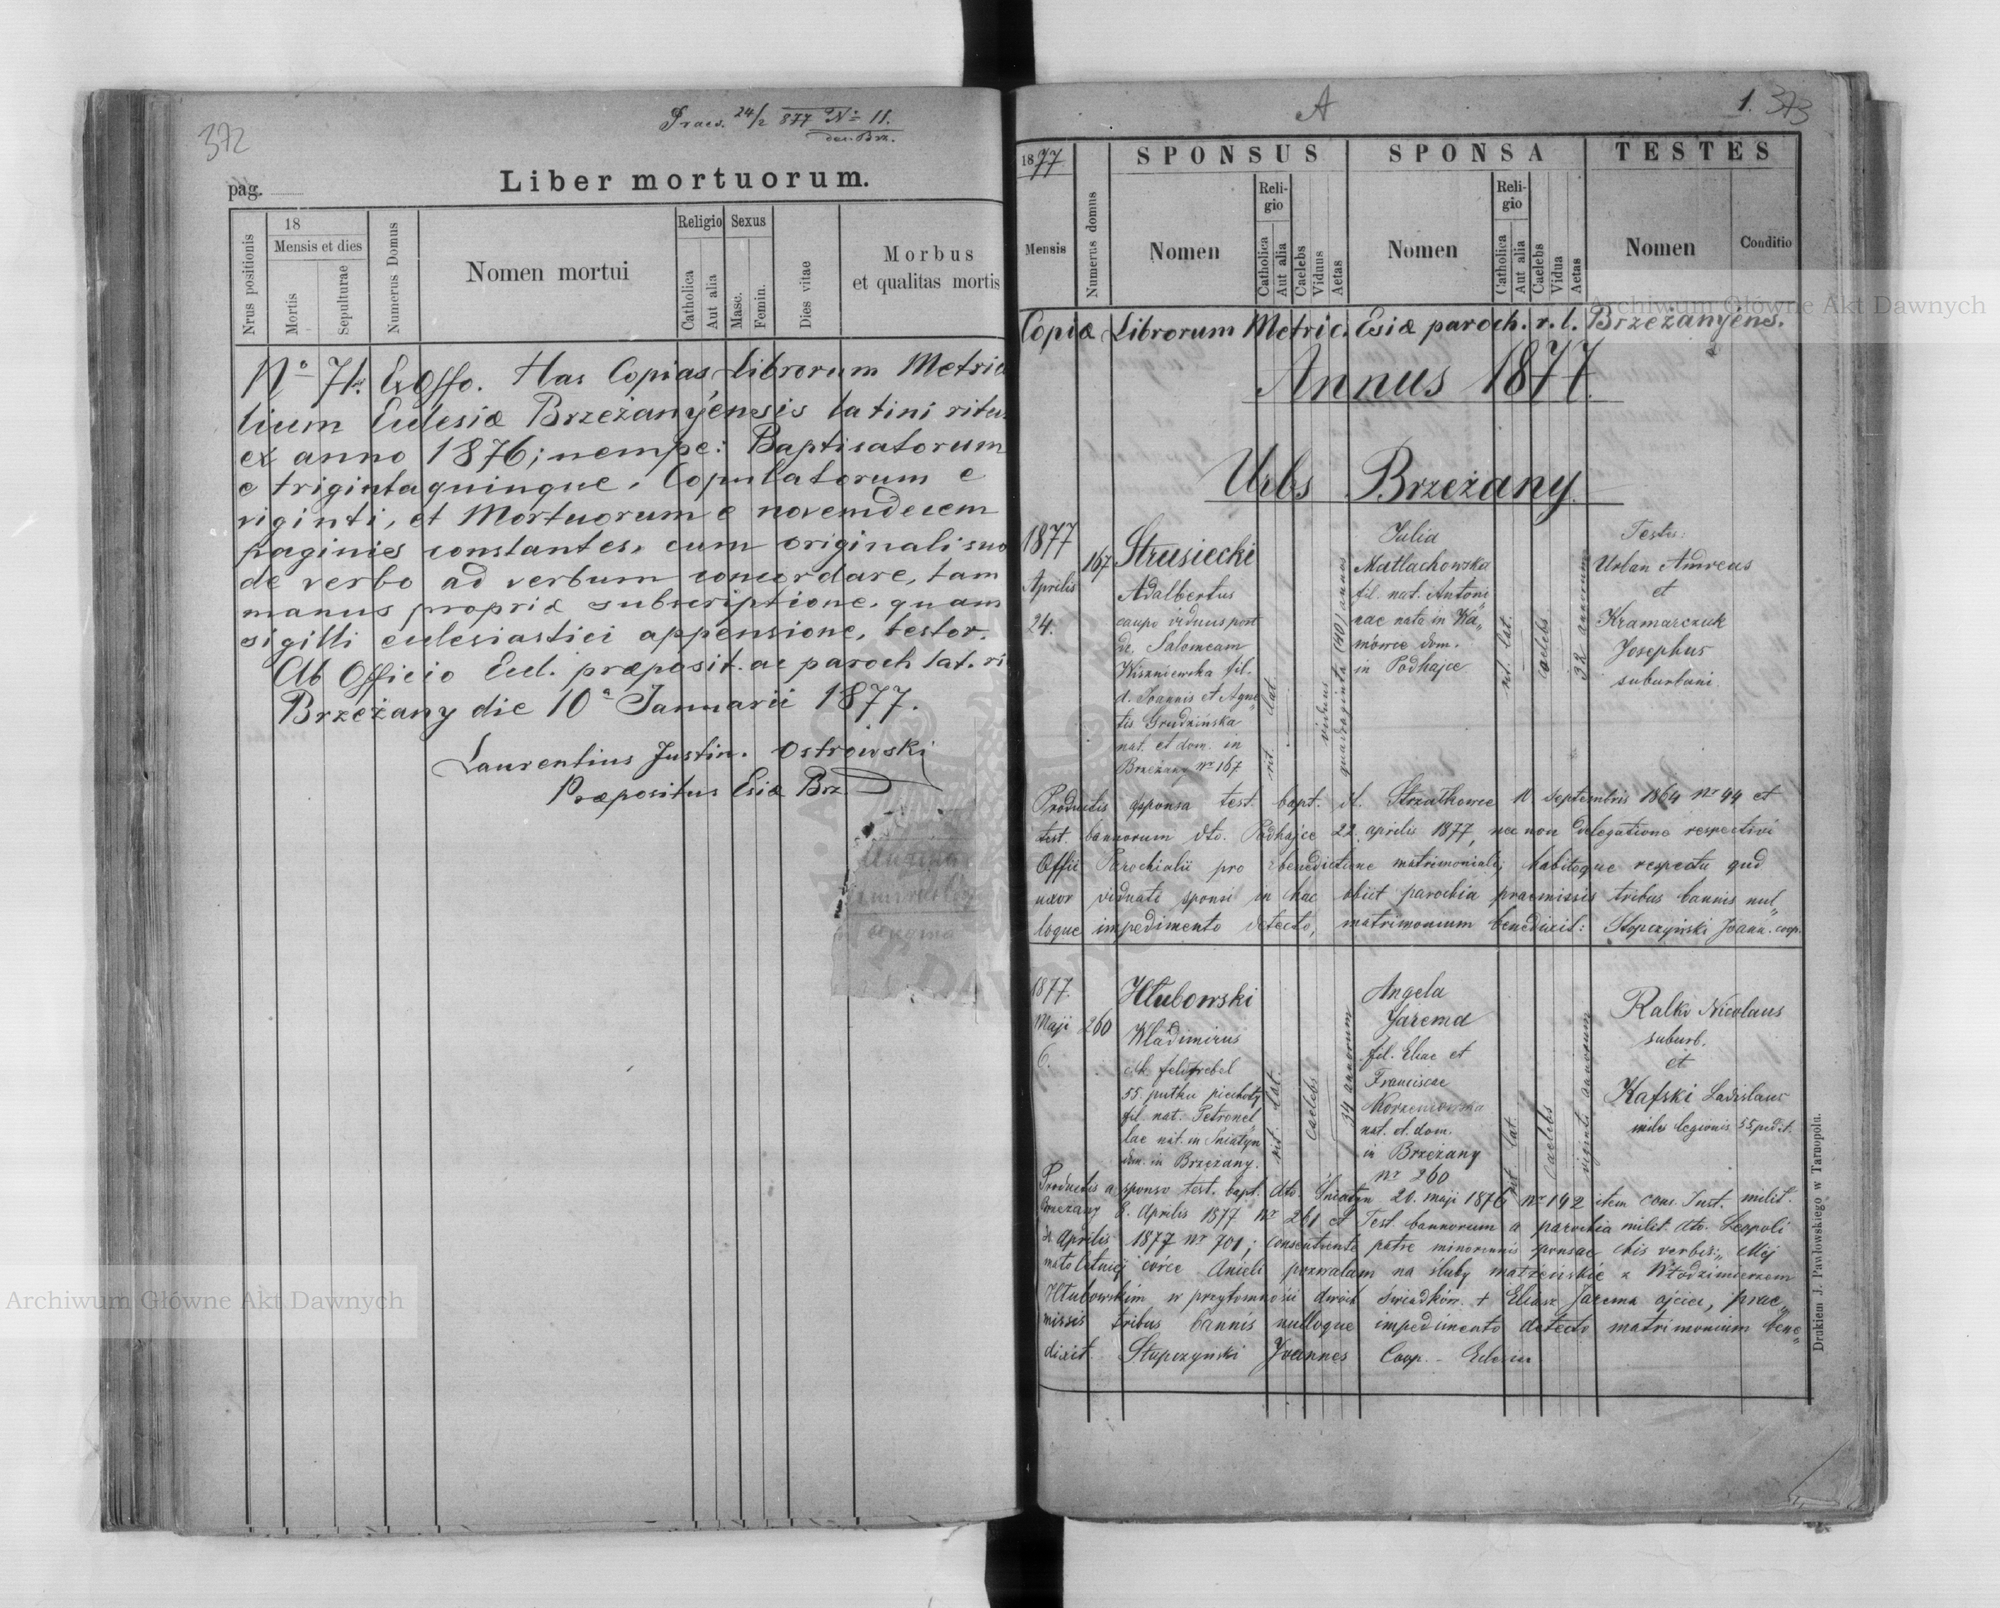 372
Praes. 24/2 877 No 11.
dec. Brz.
pag.
Liber mortuorum.
Nrus positionis
18
Mensis et dies
Mortis
Sepulturae
Numerus Domus
Nomen mortui
Religio
Catholica
Aut alia
Sexus
Masc.
Femin.
Dies vitae
Morbus
et qualitas mortis
No 71. Ex Offo. Has Copias Librorum Metrica
lium Eclesiæ Brzeżanyensis latini ritus
ex anno 1876; nempe: Baptisatorum
e trigintaquinque, Copulatorum e
viginti, et Mortuorum e novemdecem
paginis constantes, cum originali suo
de verbo ad verbum concordare, tam
manus propriæ subscriptione, quam
sigilli eclesiastici appensione, testor.
Ab Officio Ecl. præposit. ac paroch lat. ri
Brzeżany die 10a Januarii 1877.
Laurentius Justin. Ostrowski
Præpositus Esiæ Brz
A
1. 373
1877
Mensis
Numerus domus
SPONSUS
Nomen
Religio
Catholica
Aut alia
Caelebs
Viduus
Aetas
SPONSA
Nomen
Religio
Catholica
Aut alia
Caelebs
Vidua
Aetas
TESTES
Nomen
Conditio
Copiæ Librorum Metric. Esiæ paroch. r. l. Brzeżanyens.
Annus 1877.
Urbs Brzeżany.
1877
Aprilis
24.
167
Strusiecki
Adalbertus
caupo viduus post
de. Salomeam
Wiszniewska fil.
d. Joannis et Agne„
tis Grudzińska
nat. et dom. in
Brzeżany No 167
rit. lat.
viduus
quadraginta (40) annos
Julia
Matlachowska
fil. nat. Antoni„
nae nata in Wa„
mówce dom.
in Podhajce
rit. lat.
caelebs
32 annorum
Testes:
Urban Andreas
et
Kramarczuk
Josephus
suburbani.
Productis a sponsa test. bapt. dt. Strzałkowce 11 Septembris 1864 No 44 et
test. bannorum dto. Podhajce 22. aprilis 1877, nec non Delegatione respectivi
Offii Parochialii pro benedictione matrimoniali; habitoque respectu quod
uxor viduati sponsi in hac obiit parochia praemissis tribus bannis nul„
loque impedimento detecto, matrimonium benedixit: Stopczyński Joann. coop.
1877.
Maji
6.
260
Hłubowski
Władimirus
ck. feldfebel
55. pułku piechoty
fil. nat. Petronel„
lae nat. in Sniatyn
dom. in Brzeżany.
rit. lat.
caelebs
34 annorum
Angela
Jarema
fil. Eliae et
Franciscae
Korzeniowska
nat. et dom.
in Brzeżany
No 260
rit. lat.
caelebs
viginti annorum
Ralko Nicolaus
suburb.
et
Kafski Ladislaus
miles legionis 55 pedit.
Productis a sponso test. bapt. dto. Śniatyn 20. maji 1876 No 142 item cons. Inst. milit.
Brzeżany 8. Aprilis 1877 No 261 et Test. bannorum a parochia milit. dto. Leopoli
Aprilis 1877 No 701; consentiente patre minorennis sponsae his verbis: „Mej
małoletniej córce Anieli pozwalam na śluby małżeńskie z Włodzimierzem
Hłubowskim w przytomności dwóch świadków. + Eliasz Jarema ojciec, prae„
missis tribus bannis nulloque impedimento detecto matrimonium bene„
dixit. Stupczyński Joannes Coop.
Drukiem J. Pawłowskiego w Tarnopolu.
Archiwum Główne Akt Dawnych
Archiwum Główne Akt Dawnych